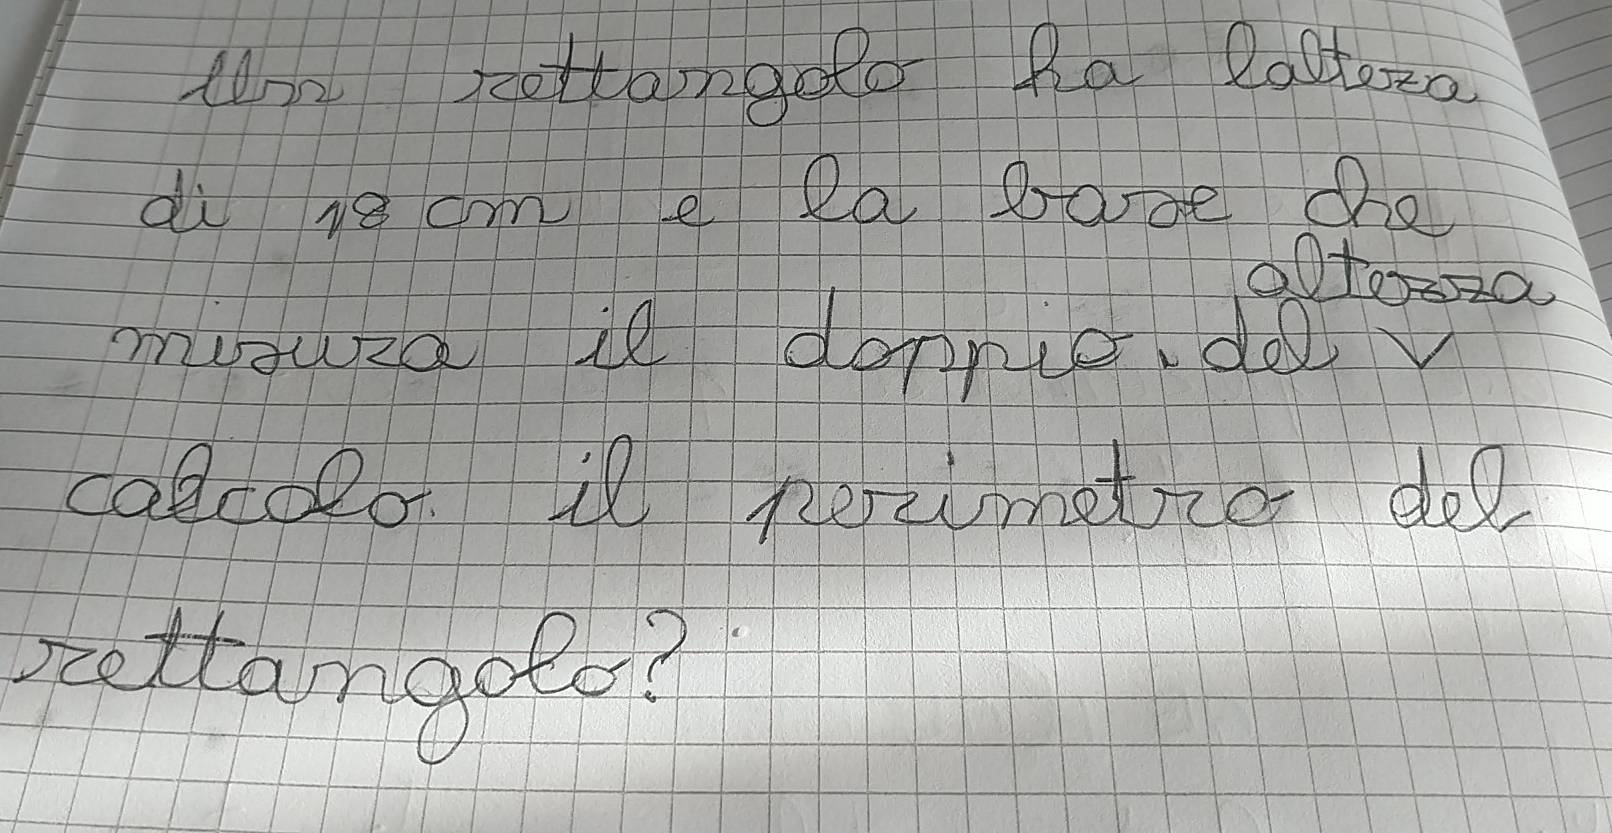 Un rettangolo ha lalteza
di 18 cm e la base che
altezza
misura il doppio. del v
calcolo. il perimetro del
rettangolo?